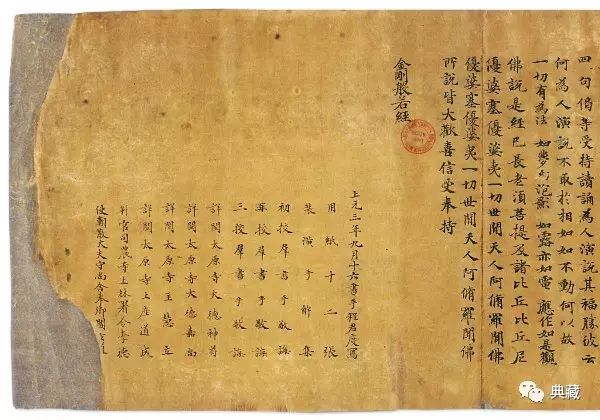 四句偈等受持讀誦為人演說其福勝彼云
何為人演說不取於相如如不動何以故
一切有為法 如夢幻泡影 如露亦如電 應作如是觀
佛說是經已長老須菩提及諸比丘比丘尼
優婆塞優婆夷一切世間天人阿脩羅聞佛
優婆塞優婆夷一切世間天人阿脩羅聞佛
所說皆大歡喜信受奉持
金剛般若經
上元三年九月十六書手程君度寫
用紙十二張
裝潢手解集
初校群書手敬誨
再校群書手敬誨
三校群書手敬誨
詳閱太原寺大德神苻
詳閱太原寺大德嘉尚
詳閱太原寺主慧立
詳閱太原寺上座道成
判官司農寺上林署令李德
使朝散大夫守尚舍奉御閻玄道
典藏